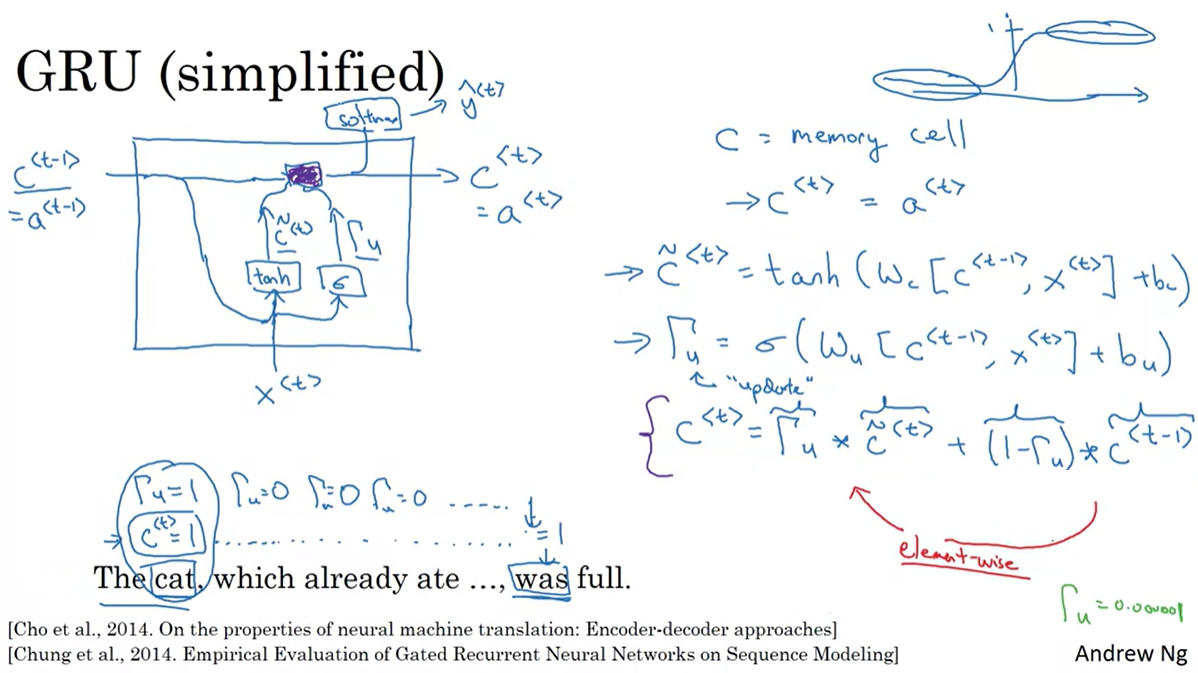 GRU (simplified)
softmax → ŷ<t>
c<t-1>
= a<t-1>
c̃<t>
Γu
tanh
σ
x<t>
c<t>
= a<t>
1
C = memory cell
→ c<t> = a<t>
→ c̃<t> = tanh (Wc [c<t-1>, x<t>] + bc)
→ Γu = σ (Wu [c<t-1>, x<t>] + bu)
"update"
c<t> = Γu * c̃<t> + (1-Γu) * c<t-1>
element-wise
Γu = 0.000001
Γu=1 Γu=0 Γu=0 Γu=0 .....
c<t>=1 ........ =1
The cat, which already ate ..., was full.
[Cho et al., 2014. On the properties of neural machine translation: Encoder-decoder approaches]
[Chung et al., 2014. Empirical Evaluation of Gated Recurrent Neural Networks on Sequence Modeling]
Andrew Ng